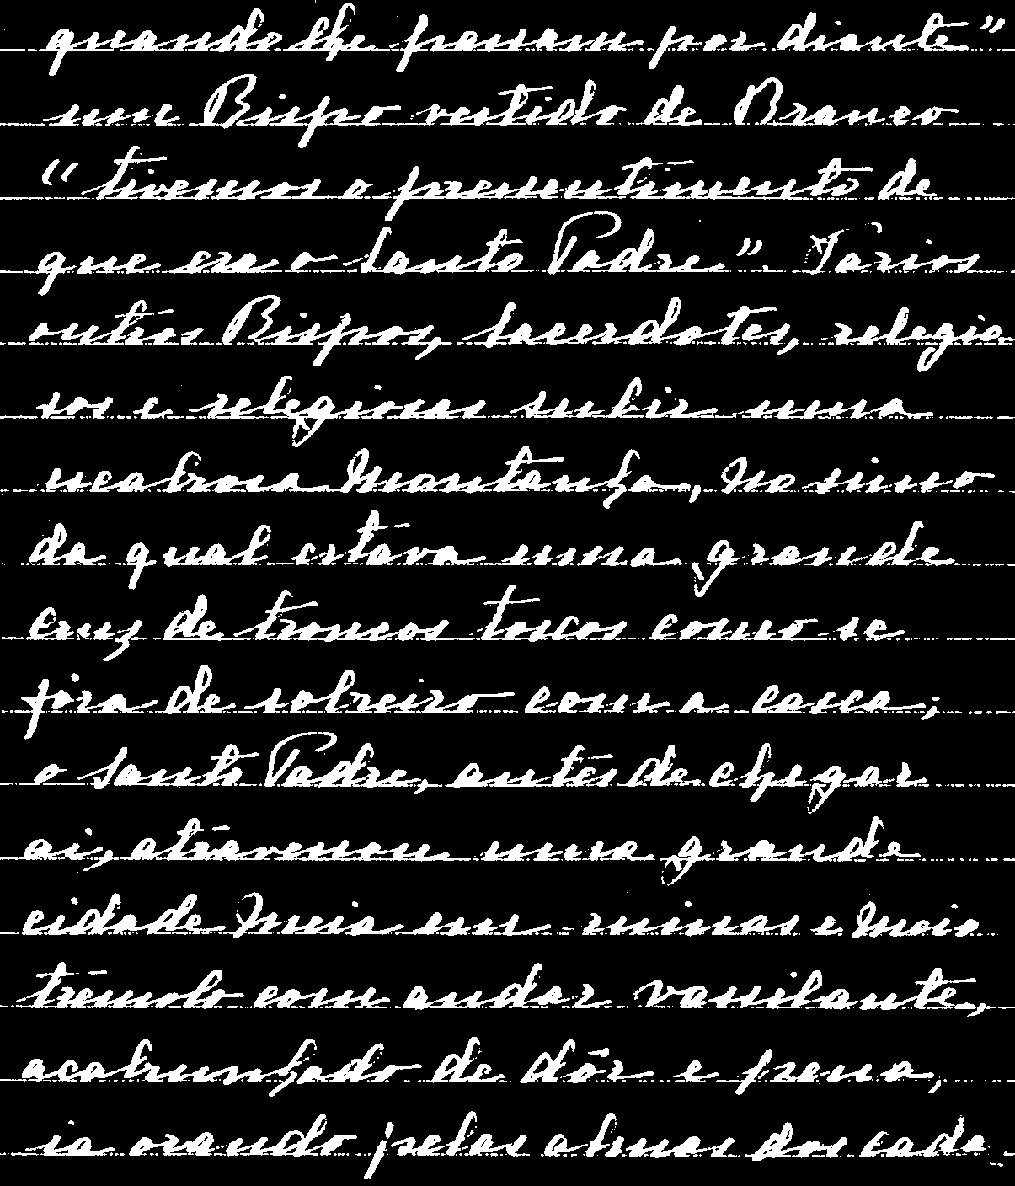 quando lhe passam por diante"
um Bispo vestido de Branco
"tivemos o pressentimento de
que era o Santo Padre". Varios
outros Bispos, sacerdotes, religio
sos e religiosas subir uma
escabrosa montanha, no simo
da qual estava uma grande
cruz de troncos toscos como se
fôra de sobreiro com a casca;
o Santo Padre, antes de chegar
aí, atravessou uma grande
cidade meia em ruinas e meio
trémolo com andar vassilante,
acabrunhado de dôr e pena,
ia orando pelas almas dos cada